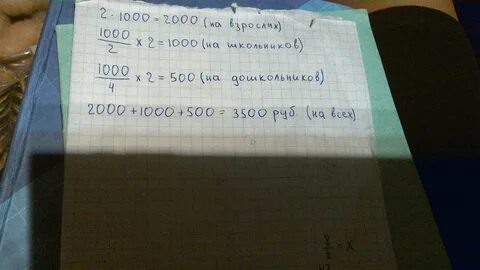 2 · 1000 = 2000 (на взрослих)
1000/2 x 2 = 1000 (на школьников)
1000/4 x 2 = 500 (на дошкольников)
2000 + 1000 + 500 = 3500 руб (на всех)